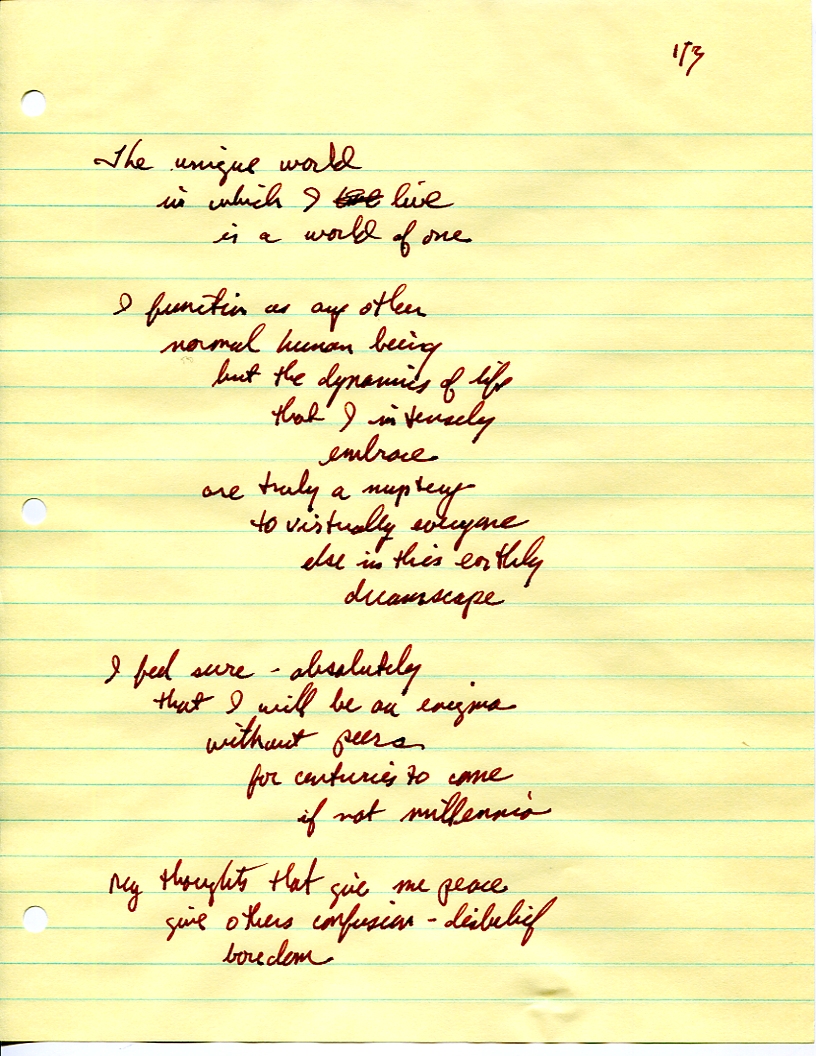 1/3
The unique world
in which I live
is a world of one
I function as any other
normal human being
but the dynamics of life
that I intensely
embrace
are truly a mystery
to virtually everyone
else in this earthly
dreamscape
I feel sure - absolutely
that I will be an enigma
without peers
for centuries to come
if not millennia
My thoughts that give me peace
give others confusion - disbelief
boredom